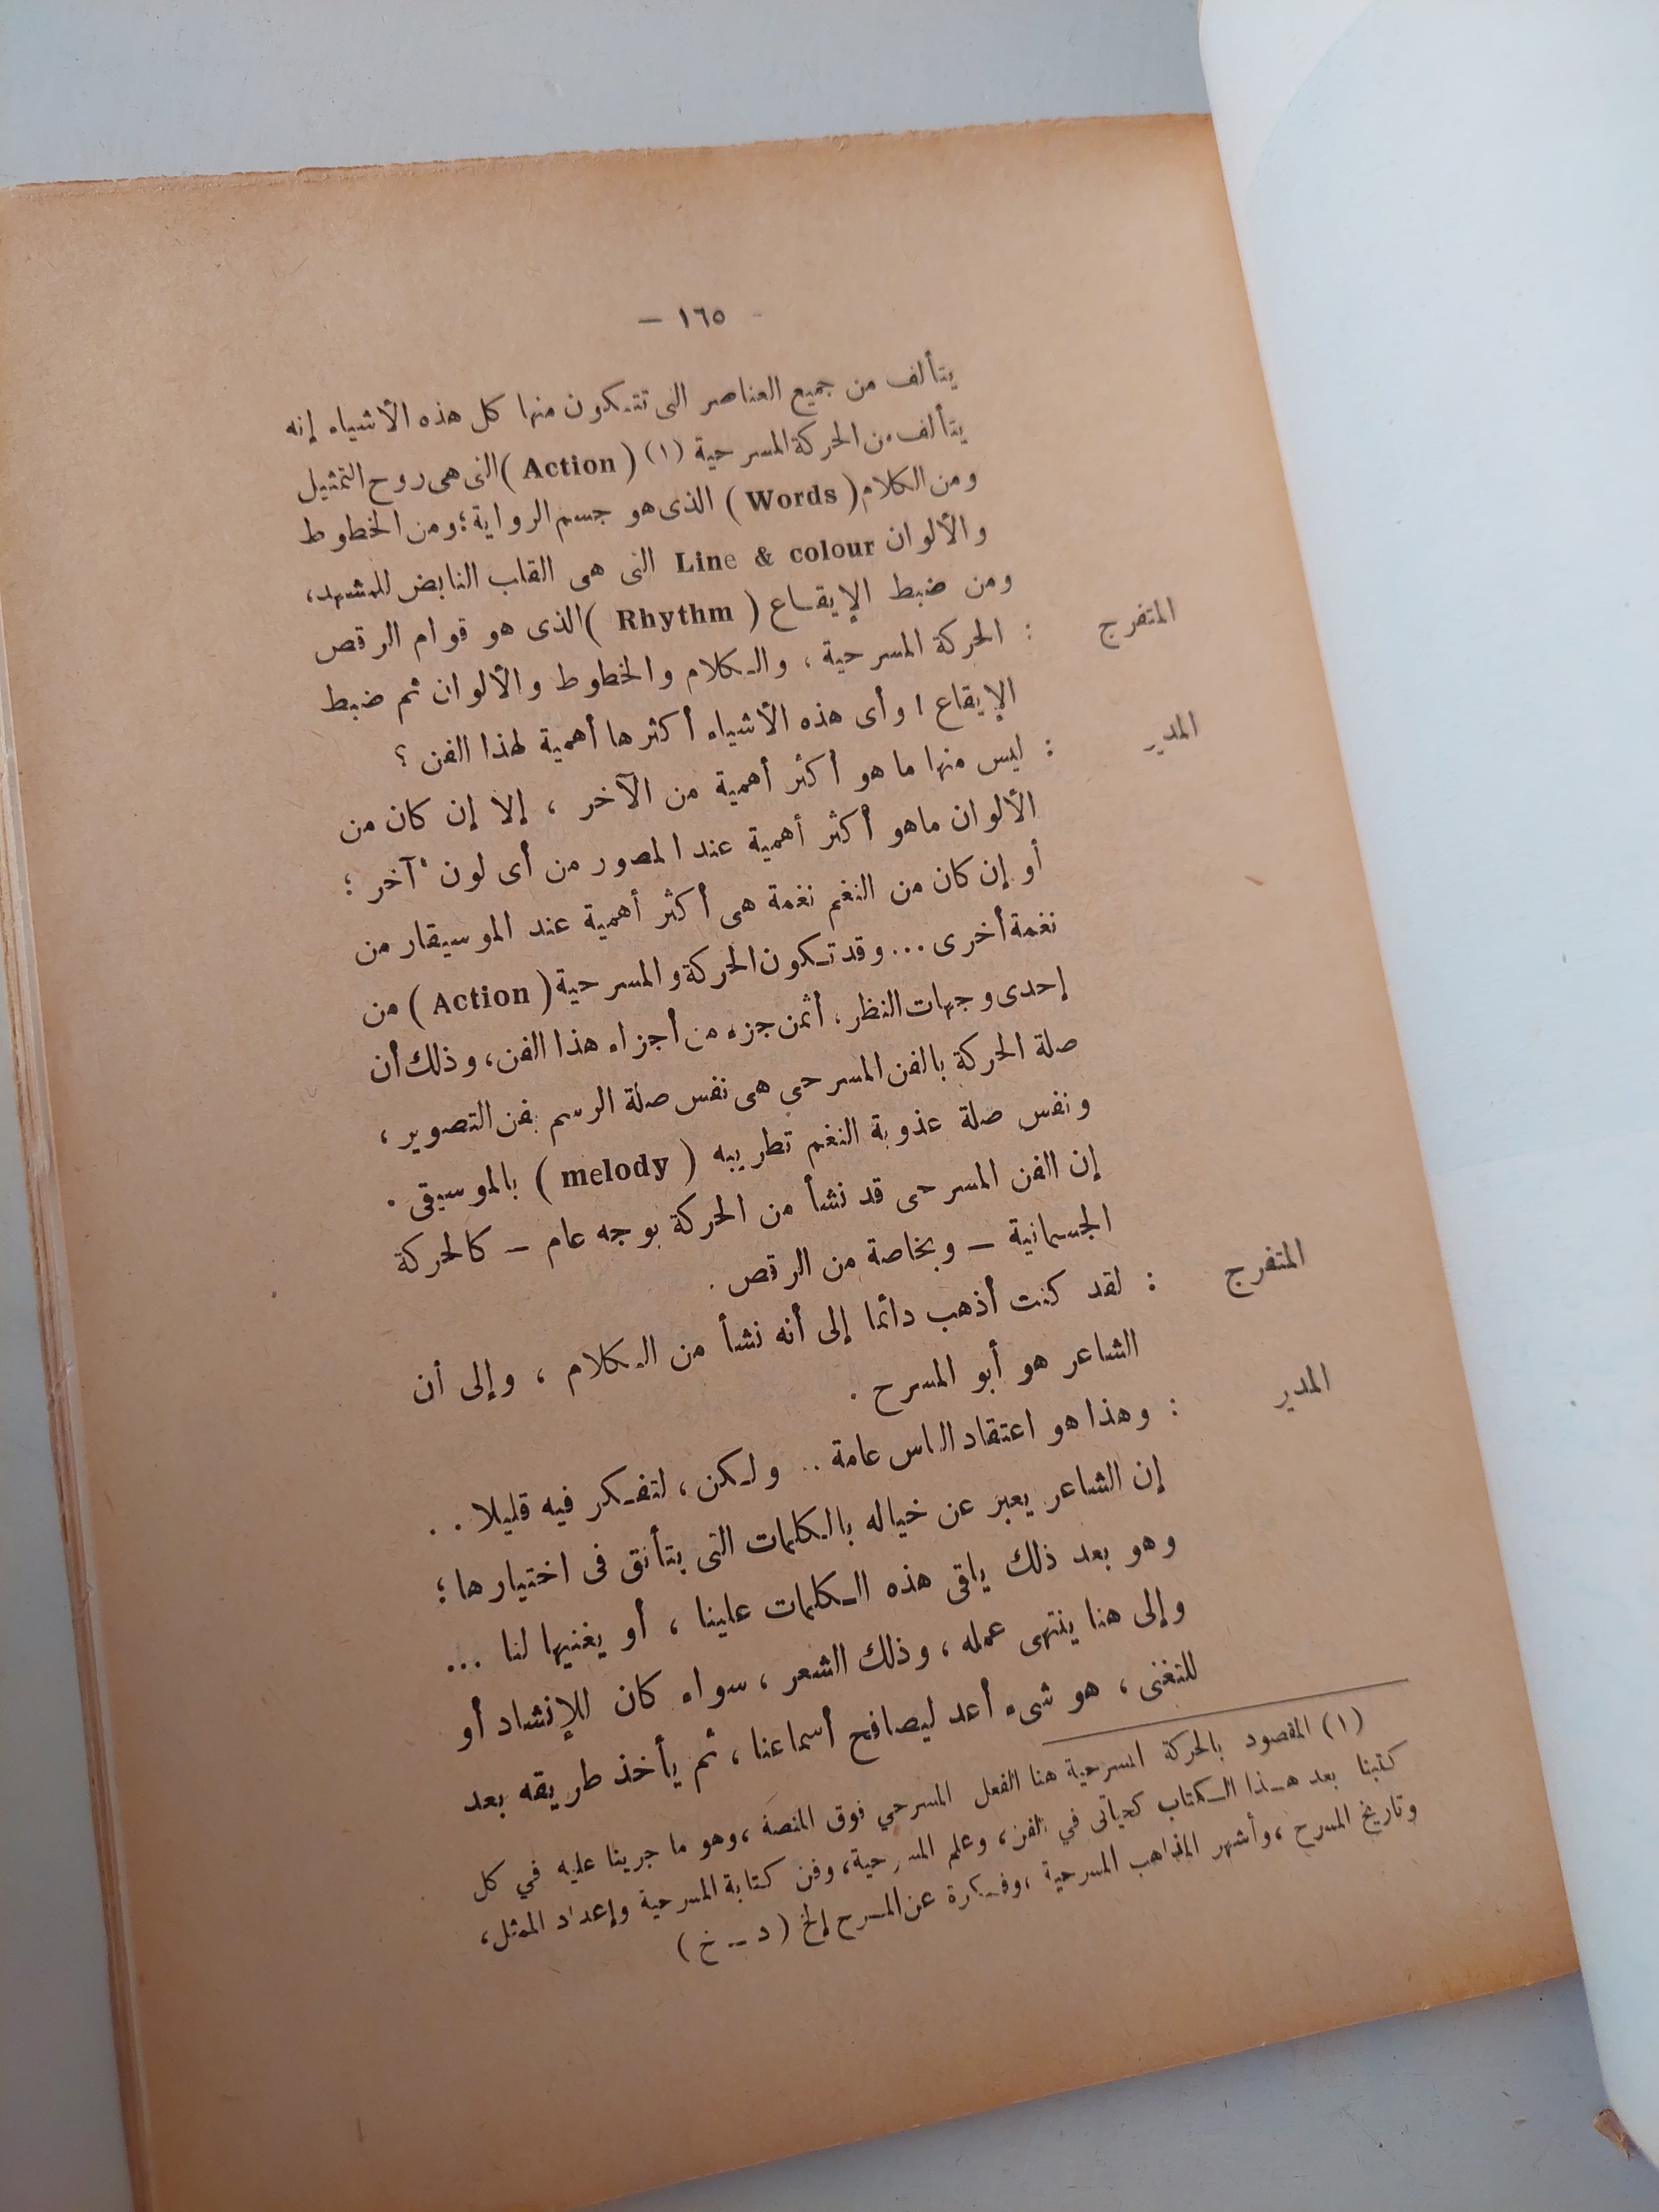 — ١٦٥ —
يتألف من جميع العناصر التى تتكون منها كل هذه الأشياء إنه
يتألف من الحركة المسرحية (١) (Action) التى هى روح التمثيل
ومن الكلام (Words) الذى هو جسم الرواية؛ ومن الخطوط
والألوان Line & colour التى هى القلب النابض للمشهد،
ومن ضبط الإيقاع (Rhythm) الذى هو قوام الرقص
المتفرج : الحركة المسرحية، والكلام والخطوط والألوان ثم ضبط
الإيقاع! وأى هذه الأشياء أكثرها أهمية لهذا الفن ؟
المدير : ليس منها ما هو أكثر أهمية من الآخر ، إلا إن كان من
الألوان ماهو أكثر أهمية عند المصور من أى لون آخر ؛
أو إن كان من النغم نغمة هى أكثر أهمية عند الموسيقار من
نغمة أخرى ... وقد تكون الحركة والمسرحية (Action) من
إحدى وجهات النظر، أثمن جزء من أجزاء هذا الفن، وذلك أن
صلة الحركة بالفن المسرحى هى نفس صلة الرسم بفن التصوير ،
ونفس صلة عذوبة النغم تطريبه (melody) بالموسيقى .
إن الفن المسرحى قد نشأ من الحركة بوجه عام — كالحركة
الجسمانية — وبخاصة من الرقص .
المتفرج : لقد كنت أذهب دائما إلى أنه نشأ من الكلام ، وإلى أن
الشاعر هو أبو المسرح .
المدير : وهذا هو اعتقاد الناس عامة .. ولكن، لتفكر فيه قليلا ..
إن الشاعر يعبر عن خياله بالكلمات التى يتأنق فى اختيارها؛
وهو بعد ذلك يلقى هذه الكلمات علينا ، أو يغنيها لنا ...
وإلى هنا ينتهى عمله ، وذلك الشعر ، سواء كان للإنشاد أو
للتغنى ، هو شىء أعد ليصافح أسماعنا ، ثم يأخذ طريقه بعد
(١) المقصود بالحركة المسرحية هنا الفعل المسرحي فوق المنصة ، وهو ما جرينا عليه في كل
كتبنا بعد هذا الكتاب كحياتى في الفن، وعلم المسرحية، وفن كتابة المسرحية وإعداد الممثل،
وتاريخ المسرح ، وأشهر المذاهب المسرحية ، وفكرة عن المسرح إلخ (د — خ)